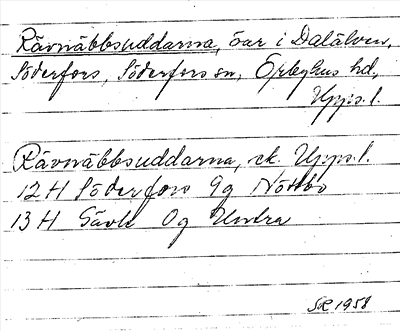 Rävnäbbsuddarna, öar i Dalälven,
Söderfors, Söderfors sn, Örbyhus hd,
Upps. l.
Rävnäbbsuddarna, ek. Upps. l.
12 H Söderfors 9g Nöttbo
13 H Gävle 0g Undra
SR 1958